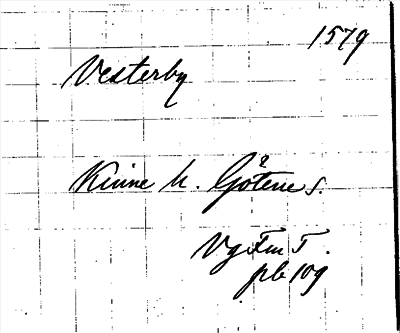 1579
Vesterby
Kinne h. Götene s.
Vg Fm T.
pb 109